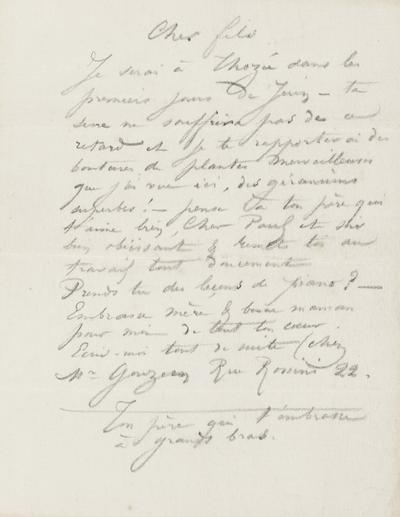 Cher fils
Je serai à Thozée dans les
premiers jours de Juin – ta
serre ne souffrira pas de ce
retard et je te rapporterai des
boutures de plantes merveilleuses
que j'ai vue ici, des géraniums
superbes! – pense à ton père qui
t'aime bien, Cher Paul et sois
bien obéissant & remets toi au
travail tout doucement
Prends tu des leçons de piano? –
Embrasse mère & bonne maman
pour moi de tout ton cœur.
Ecris-moi tout de suite (chez
Mr Gouzien Rue Rossini 22.
Ton père qui t'embrasse
à grands bras.